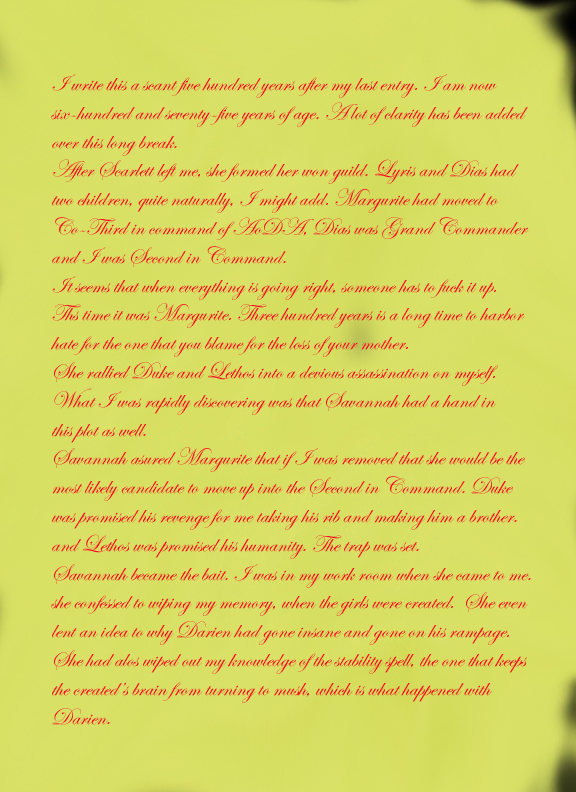 I write this a scant five hundred years after my last entry. I am now
six-hundred and seventy-five years of age. A lot of clarity has been added
over this long break.
After Scarlett left me, she formed her won guild. Lyris and Dias had
two children, quite naturally, I might add. Margurite had moved to
Co-Third in command of AoDA, Dias was Grand Commander
and I was Second in Command.
It seems that when everything is going right, someone has to fuck it up.
Ths time it was Margurite. Three hundred years is a long time to harbor
hate for the one that you blame for the loss of your mother.
She rallied Duke and Lethos into a devious assassination on myself.
What I was rapidly discovering was that Savannah had a hand in
this plot as well.
Savannah asured Margurite that if I was removed that she would be the
most likely candidate to move up into the Second in Command. Duke
was promised his revenge for me taking his rib and making him a brother.
and Lethos was promised his humanity. The trap was set.
Savannah became the bait. I was in my work room when she came to me.
she confessed to wiping my memory, when the girls were created. She even
lent an idea to why Darien had gone insane and gone on his rampage.
She had alos wiped out my knowledge of the stability spell, the one that keeps
the created's brain from turning to mush, which is what happened with
Darien.